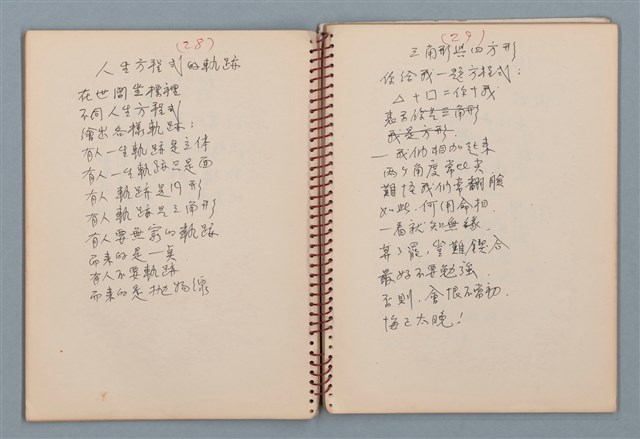 (28)
人生方程式的軌跡
在世図坐標裡
不同人生方程式
繪出各樣軌跡：
有人一生軌跡是立体
有人一生軌跡只是面
有人軌跡是円形
有人軌跡是三角形
有人要無窮的軌跡
而来的是一奌
有人不要軌跡
而来的是抛物線
(29)
三角形與四方形
你給我一題方程式：
△+口=你+我
若不你是三角形
我是方形．
—我們相加起来
两个角度常
我們常翻臉
如此，何用命相
一看就知無緣．
算了罷，難鍥合
最好不要勉強．
否則，會恨不當初．
悔已太晚！